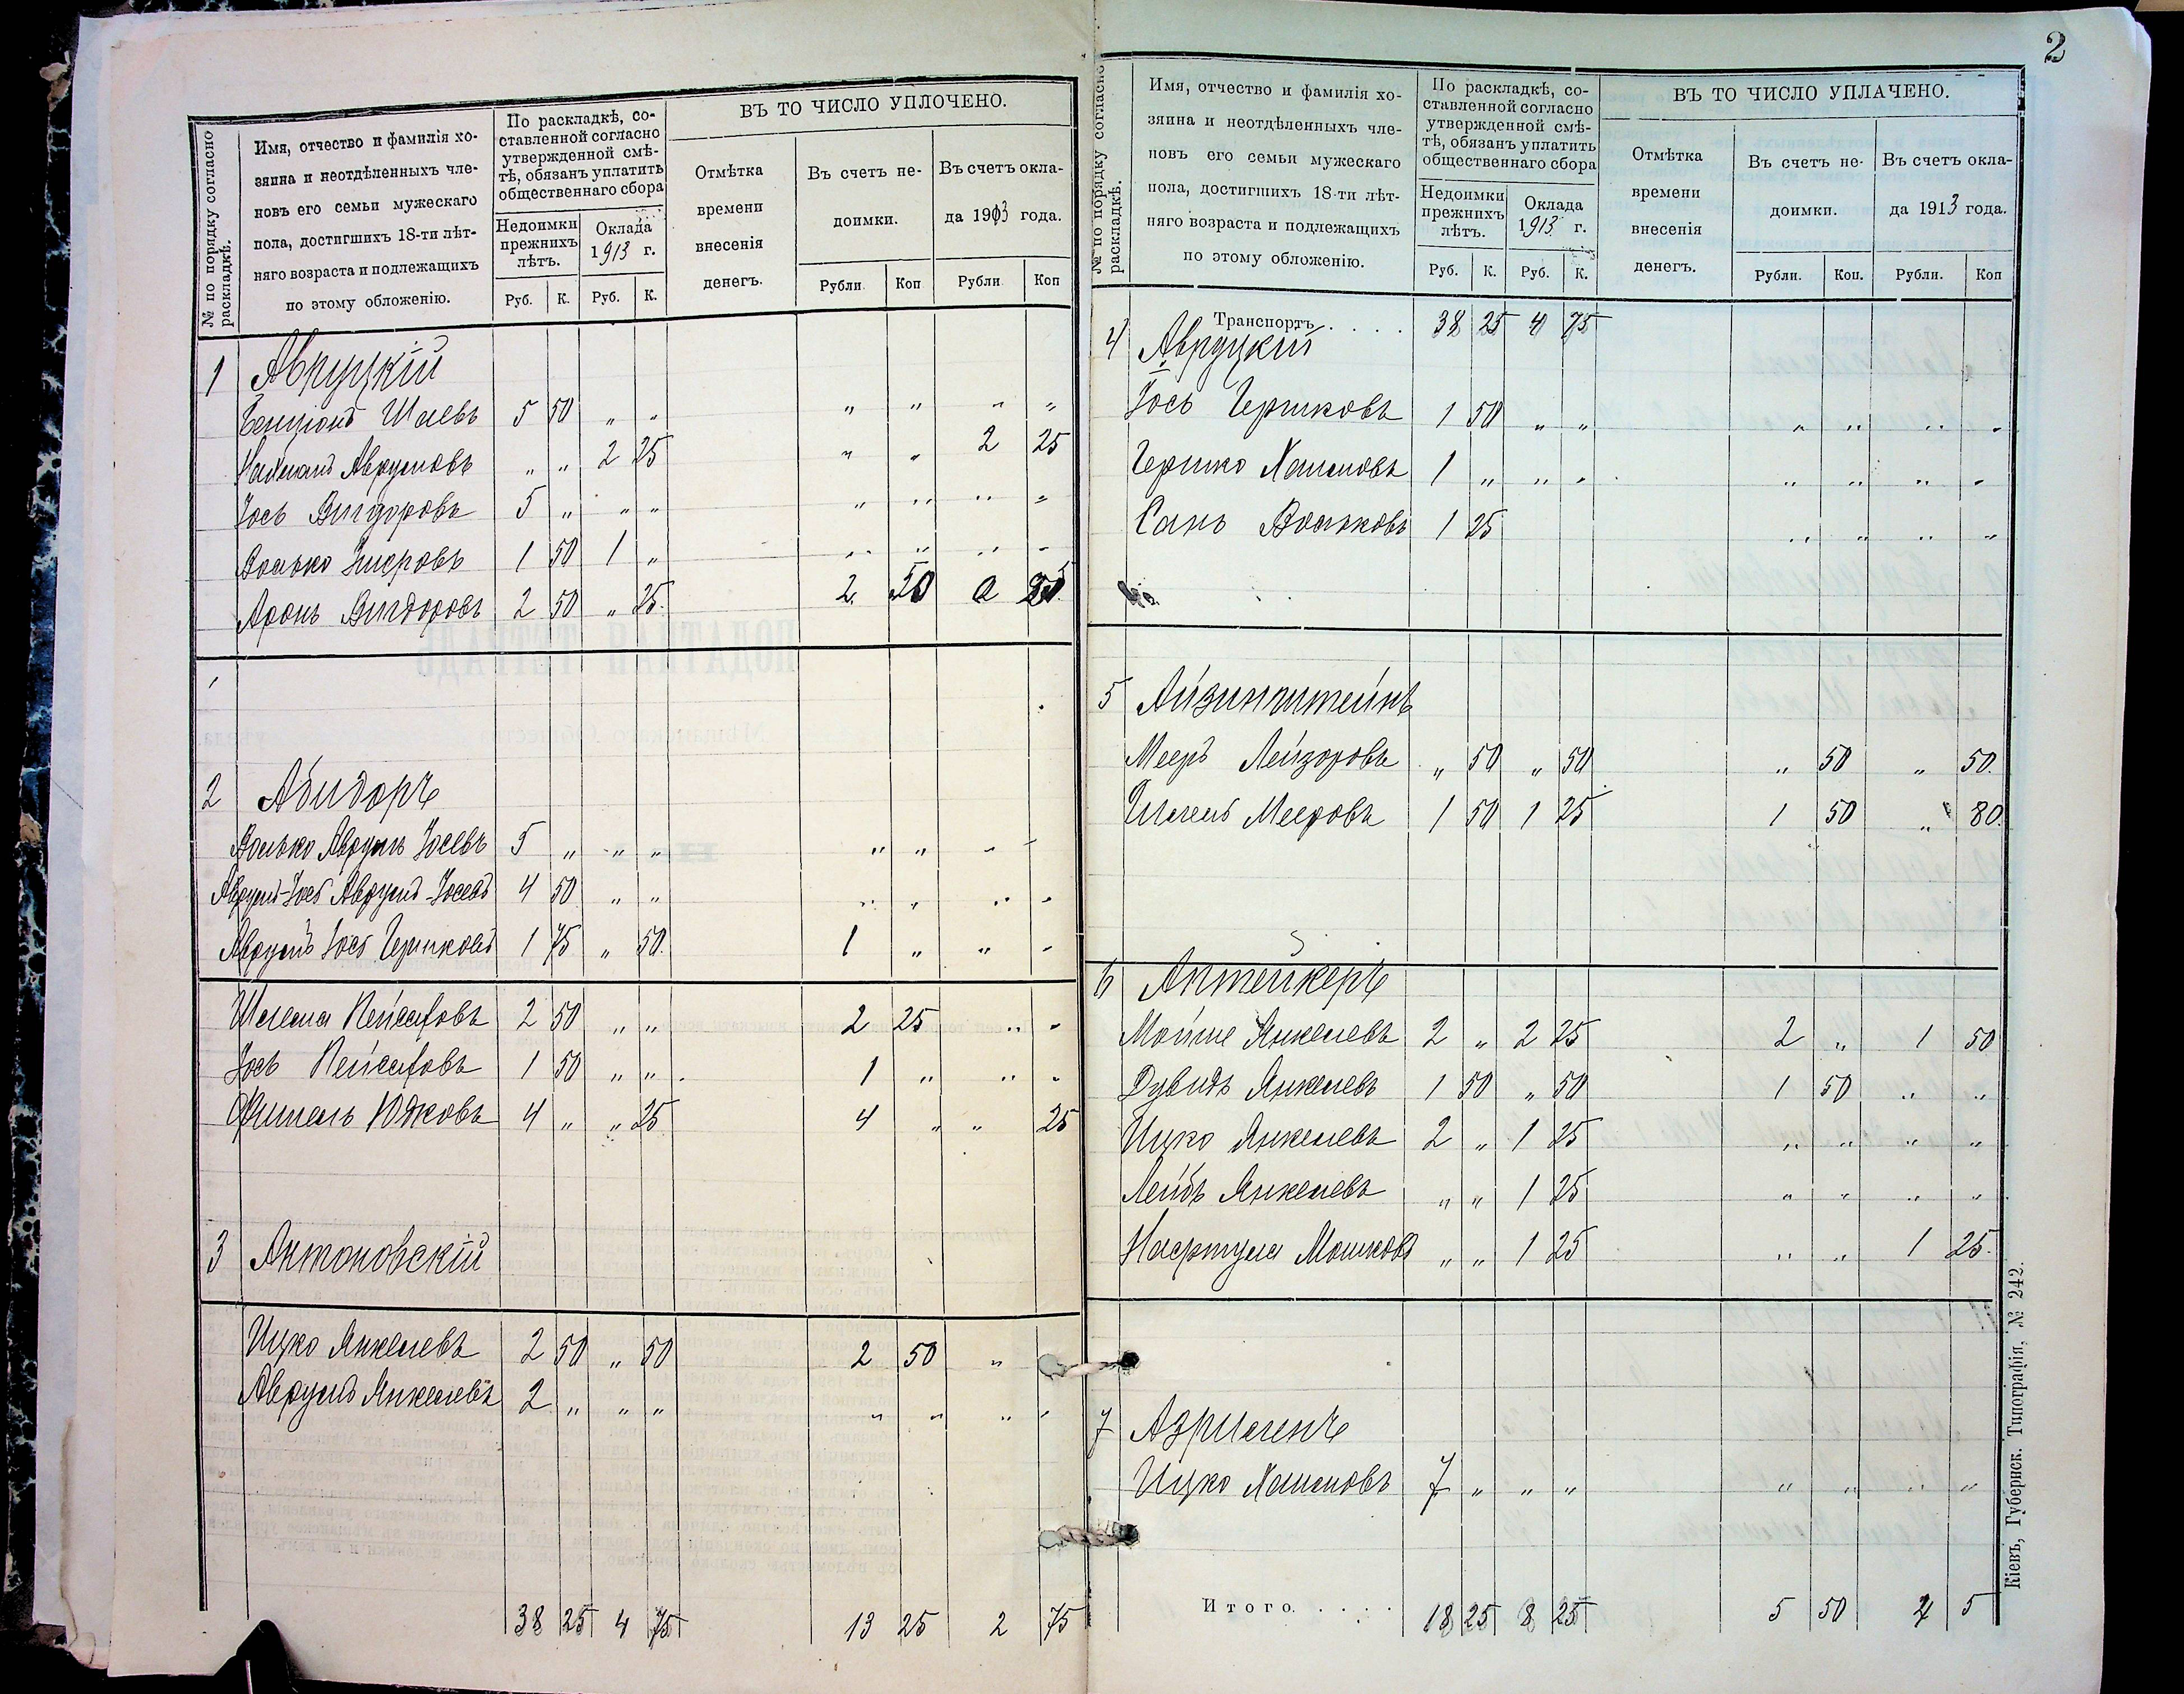 № по порядку согласно раскладкѣ.
Имя, отчество и фамилія хо-
зяина и неотдѣленныхъ чле-
новъ его семьи мужескаго
пола, достигшихъ 18-ти лѣт-
няго возраста и подлежащихъ
по этому обложенію.
По раскладкѣ, со-
ставленной согласно
утвержденной смѣ-
тѣ, обязанъ уплатить
общественнаго сбора
Недоимки прежнихъ лѣтъ.
Оклада 1913 г.
Руб. К. Руб. К.
ВЪ ТО ЧИСЛО УПЛОЧЕНО.
Отмѣтка
времени
внесенія
денегъ.
Въ счетъ не-
доимки.
Въ счетъ окла-
да 1913 года.
Рубли Коп Рубли Коп
1 Авруцкій
Бенціонъ Шаевъ 5 50 " " " " " "
Нахманъ Аврумовъ " " 2 25 " " 2 25
Іось Вигдоровъ 5 " " " " " " "
Волько Хисровъ 1 50 1 " " " " "
Аронъ Вигдоровъ 2 50 " 25 2 50
2 Абидоръ
Волько Аврумъ Іосевъ 5 " " " " " " "
Аврумъ-Іось Аврумъ-Іосевъ 4 50 " " " " " "
Аврумъ Іось Гершковъ 1 75 " 50 1 " " "
Шлема Пейсаховъ 2 50 " " 2 25 " "
Іось Пейсаховъ 1 50 " " 1 " " "
Фишель Юдковъ 4 " " 25 4 " " 25
3 Антоновскій
Ицко Янкелевъ 2 50 " 50 2 50 "
Аврумъ Янкелевъ 2 " " " " " " "
38 25 4 75 13 25 2 75
2
№ по порядку согласно раскладкѣ.
Имя, отчество и фамилія хо-
зяина и неотдѣленныхъ чле-
новъ его семьи мужескаго
пола, достигшихъ 18-ти лѣт-
няго возраста и подлежащихъ
по этому обложенію.
По раскладкѣ, со-
ставленной согласно
утвержденной смѣ-
тѣ, обязанъ уплатить
общественнаго сбора
Недоимки прежнихъ лѣтъ.
Оклада 1913 г.
Руб. К. Руб. К.
ВЪ ТО ЧИСЛО УПЛАЧЕНО.
Отмѣтка
времени
внесенія
денегъ.
Въ счетъ не-
доимки.
Въ счетъ окла-
да 1913 года.
Рубли. Коп. Рубли. Коп
Транспортъ . . . . 38 25 4 75
4 Авруцкій
Іось Гершковъ 1 50 " " " " " "
Гершко Хаимовъ 1 " " " " " " "
Сань Вольковъ 1 25 " " " "
5 Айзинштейнъ
Мееръ Лейзоровъ " 50 " 50 " 50 " 50.
Шлемъ Мееровъ 1 50 1 25 1 50 " 80.
6 Аптейкеръ
Мойше Янкелевъ 2 " 2 25 2 " 1 50
Дувидъ Янкелевъ 1 50 " 50 1 50 " "
Ицко Янкелевъ 2 " 1 25 " " " "
Лейбъ Янкелевъ " " 1 25 " " " "
Нафтула Мошковъ " " 1 25 " " 1 25.
7 Азриленъ
Ицко Хаимовъ 7 " " " " " " "
Итого. . . . . 18 25 8 25 5 50 4 5
Кіевъ, Губернск. Типографія, № 242.